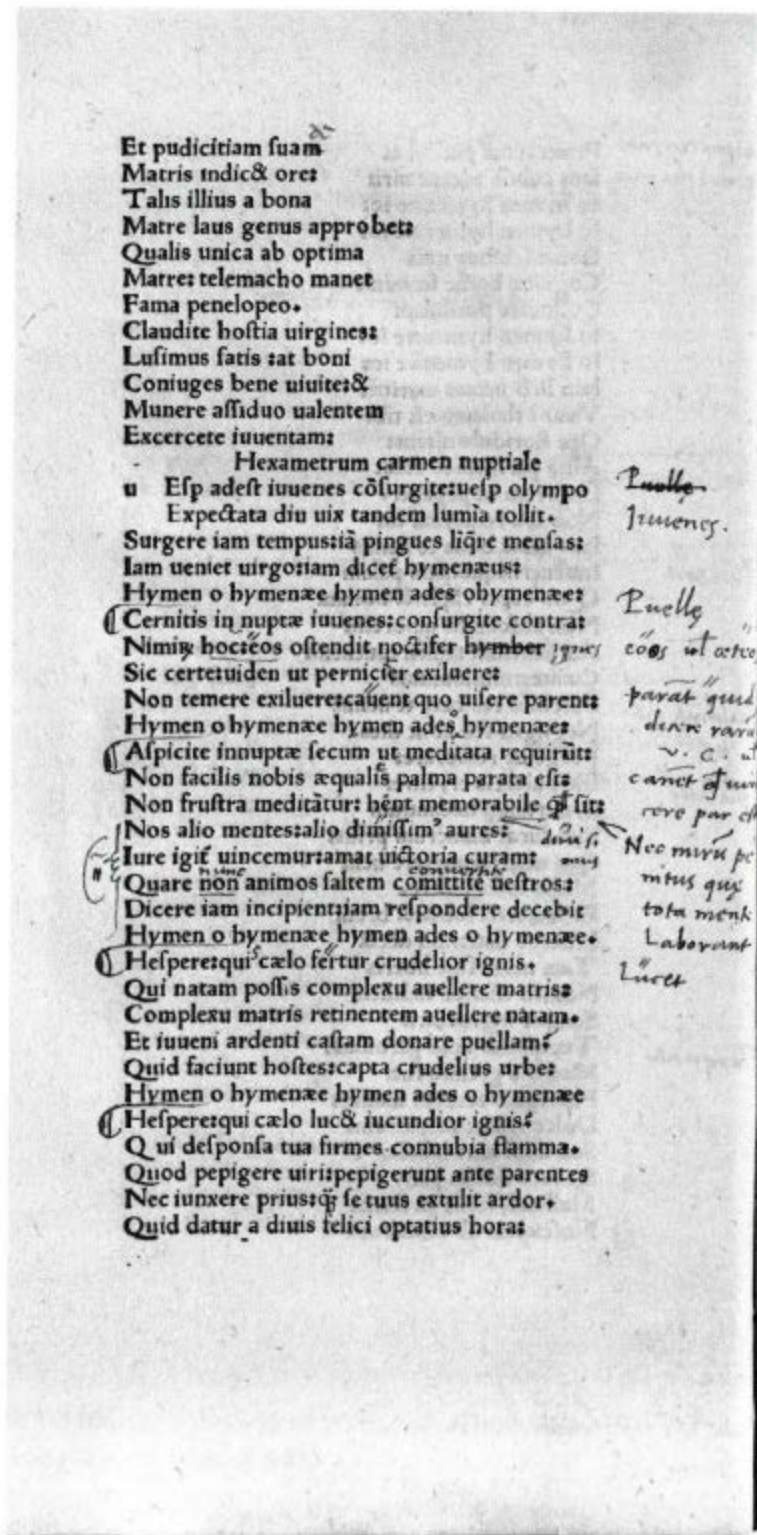 Et pudicitiam ſuam
Matris indic& ore:
Talis illius a bona
Matre laus genus approbet:
Qualis unica ab optima
Matre: telemacho manet
Fama penelopeo.
Claudite hoſtia uirgines:
Luſimus ſatis :at boni
Coniuges bene uiuite:&
Munere aſſiduo ualentem
Excercete iuuentam:
Hexametrum carmen nuptiale
u Eſp adeſt iuuenes cōſurgite:ueſp olympo
Puellę
Expectata diu uix tandem lumīa tollit.
Iuuenes.
Surgere iam tempus:iā pingues liq̄re menſas:
Iam ueniet uirgo:iam dicet̄ hymenæus:
Hymen o hymenæe hymen ades ohymenæe:
Puellę
Cernitis in nuptæ iuuenes:conſurgite contra:
Nimiꝝ hoc:eos oſtendit noctifer hymber ignes
eoos ul̄ œteos
Sic certe:uiden ut pernicſer exiluere:
Non temere exiluere:cauent quo uiſere parent:
parāt quid
Hymen o hymenæe hymen ades hymenæe:
dicere
Aſpicite innuptæ ſecum ut meditata requirūt:
v. c. ul̄
Non facilis nobis æqualis palma parata eſt:
canet
Non fruſtra meditātur: hēnt memorabile qđ ſit:
cere par eſt
Nos alio mentes:alio dimiſſimꝰ aures:
diuiſimus
Iure igit̄ uincemur:amat uictoria curam:
Nec mirū pe
nitus quę
Quare non animos ſaltem comittite ueſtros:
nunc
Dicere iam incipient:iam reſpondere decebit
tota mente
Hymen o hymenæe hymen ades o hymenæe.
Laborant
Heſpere:qui cælo fertur crudelior ignis.
Lucet
Qui natam poſſis complexu auellere matris:
Complexu matris retinentem auellere natam.
Et iuueni ardenti caſtam donare puellam:
Quid faciunt hoſtes:capta crudelius urbe:
Hymen o hymenæe hymen ades o hymenæe
Heſpere:qui cælo luc& iucundior ignis:
Q ui deſponſa tua firmes connubia flamma.
Quod pepigere uiri:pepigerunt ante parentes
Nec iunxere prius:q̄ ſe tuus extulit ardor.
Quid datur a diuis felici optatius hora: